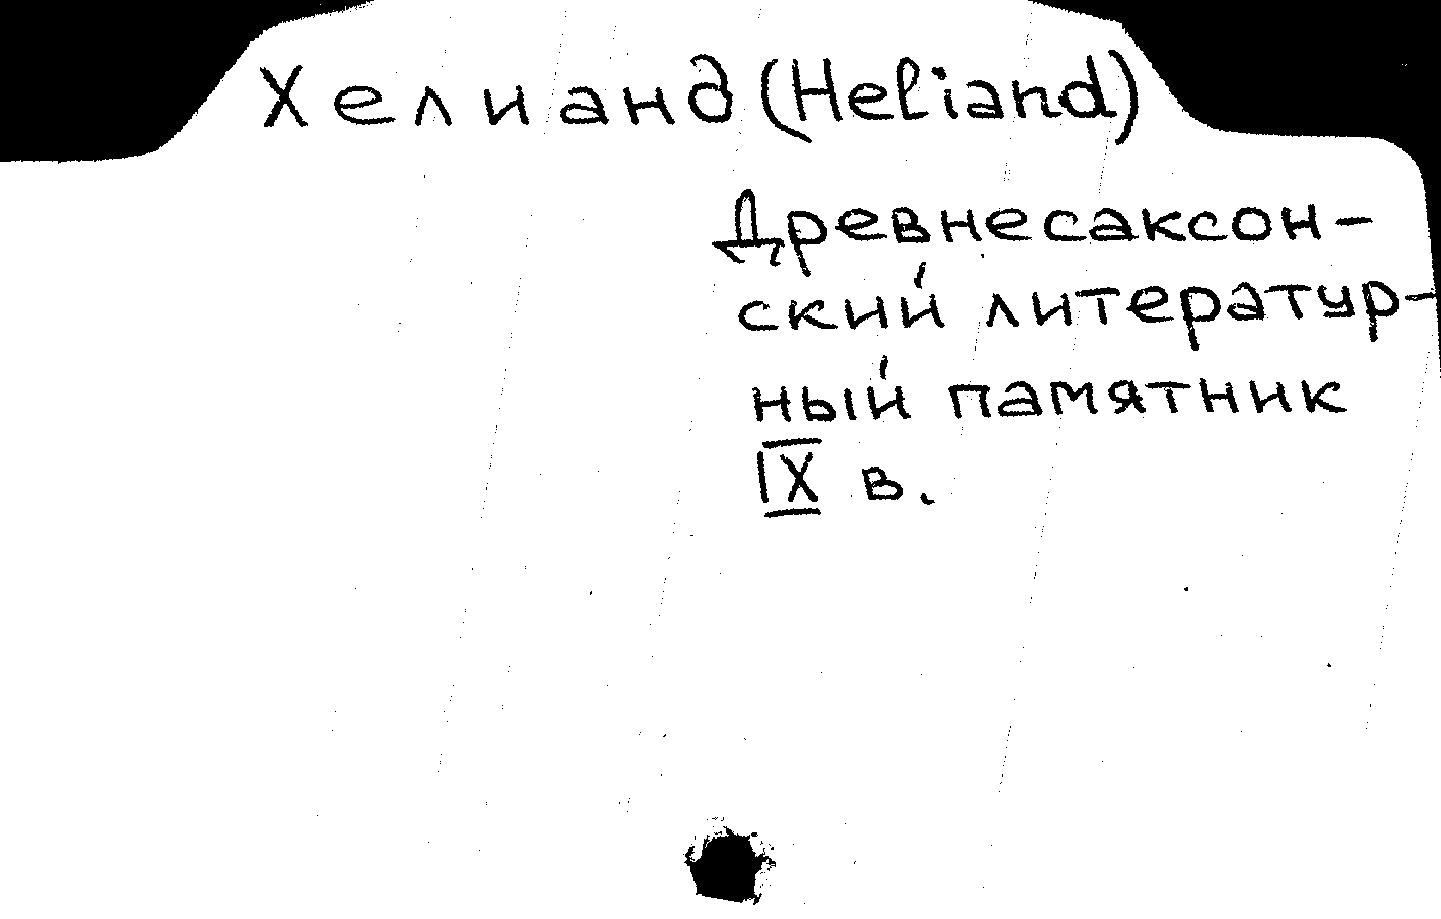 Хелианд (Heliand)
Древнесаксон-
ский литератур-
ный памятник
IX в.